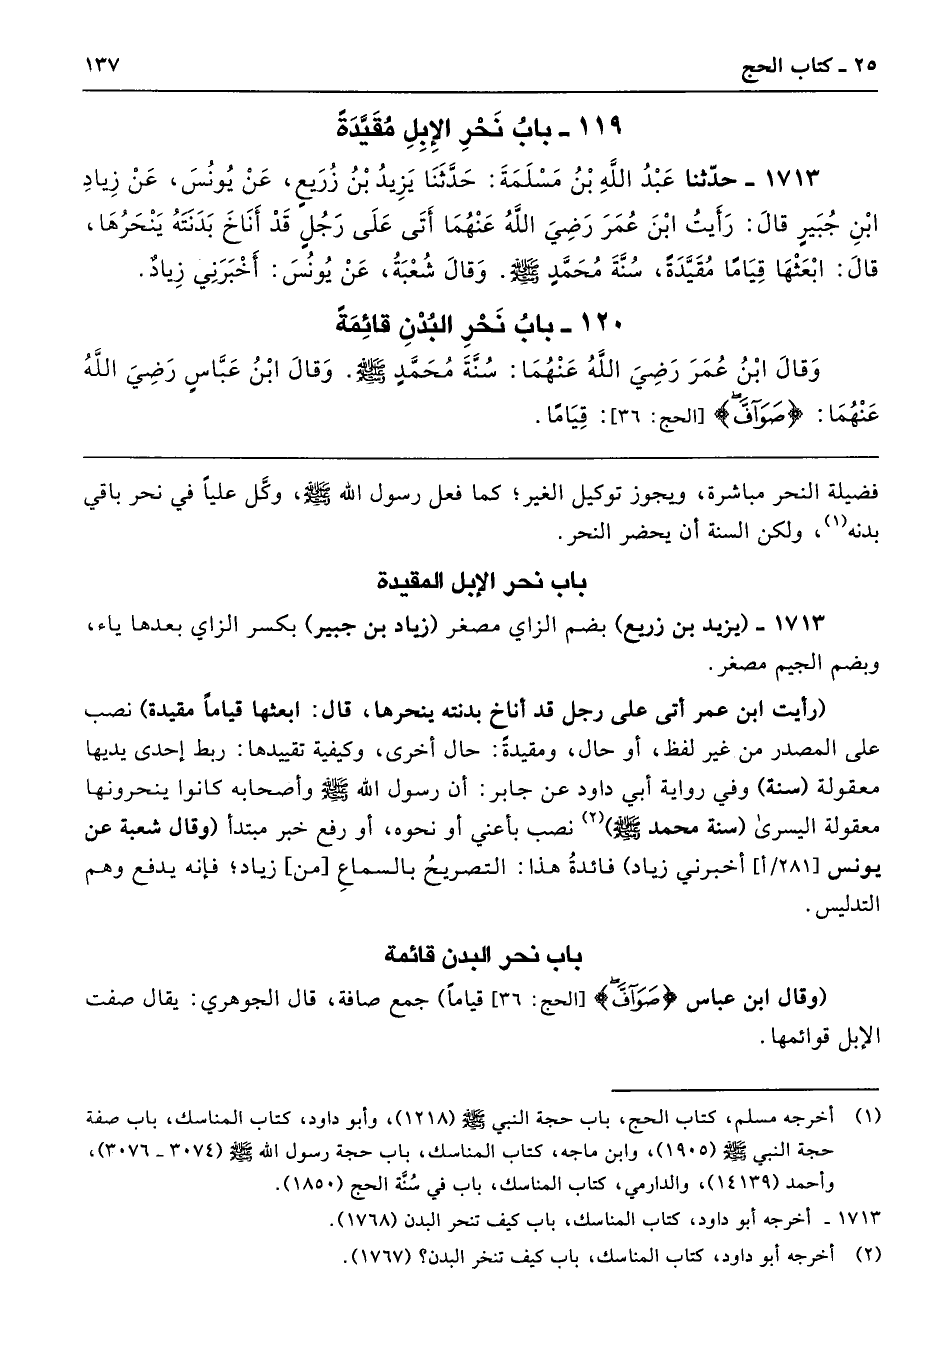 ٢٥ - كتاب الحج
١٣٧
١١٩ - بابُ نَحْرِ الإِبِلِ مُقَيَّدَةً
١٧١٣ - حدّثنا عَبْدُ اللَّهِ بْنُ مَسْلَمَةَ: حَدَّثَنَا يَزِيدُ بْنُ زُرَيعٍ، عَنْ يُونُسَ، عَنْ زِيادِ
ابْنِ جُبَيرٍ قالَ: رَأَيتُ ابْنَ عُمَرَ رَضِيَ اللَّهُ عَنْهُمَا أَتى عَلَى رَجُلٍ قَدْ أَنَاخَ بَدَنَتَهُ يَنْحَرُهَا،
قالَ: ابْعَثْهَا قِيَامًا مُقَيَّدَةً، سُنَّةَ مُحَمَّدٍ ﷺ. وَقالَ شُعْبَةُ، عَنْ يُونُسَ: أَخْبَرَنِي زِيادٌ.
١٢٠ - بابُ نَحْرِ البُدْنِ قائِمَةً
وَقالَ ابْنُ عُمَرَ رَضِيَ اللَّهُ عَنْهُمَا: سُنَّةَ مُحَمَّدٍ ﷺ. وَقالَ ابْنُ عَبَّاسٍ رَضِيَ اللَّهُ
عَنْهُمَا: ﴿صَوَآفَّۖ﴾ [الحج: ٣٦]: قِيَامًا.
فضيلة النحر مباشرة، ويجوز توكيل الغير؛ كما فعل رسول الله ﷺ، وكَّل علياً في نحر باقي
بدنه(١)، ولكن السنة أن يحضر النحر.
باب نحر الإبل المقيدة
١٧١٣ - (يزيد بن زريع) بضم الزاي مصغر (زياد بن جبير) بكسر الزاي بعدها ياء،
وبضم الجيم مصغر.
(رأيت ابن عمر أتى على رجل قد أناخ بدنته ينحرها، قال: ابعثها قياماً مقيدة) نصب
على المصدر من غير لفظ، أو حال، ومقيدةً: حال أخرى، وكيفية تقييدها: ربط إحدى يديها
معقولة (سنة) وفي رواية أبي داود عن جابر: أن رسول الله ﷺ وأصحابه كانوا ينحرونها
معقولة اليسرىٰ (سنة محمد ﷺ)(٢) نصب بأعني أو نحوه، أو رفع خبر مبتدأ (وقال شعبة عن
يونس [٢٨١/أ] أخبرني زياد) فائدةُ هذا: التصريحُ بالسماعِ [من] زياد؛ فإنه يدفع وهم
التدليس.
باب نحر البدن قائمة
(وقال ابن عباس ﴿صَوَآفَّۖ﴾ [الحج: ٣٦] قياماً) جمع صافة، قال الجوهري: يقال صفت
الإبل قوائمها.
(١) أخرجه مسلم، كتاب الحج، باب حجة النبي ﷺ (١٢١٨)، وأبو داود، كتاب المناسك، باب صفة
حجة النبي ﷺ (١٩٠٥)، وابن ماجه، كتاب المناسك، باب حجة رسول الله ﷺ (٣٠٧٤ - ٣٠٧٦)،
وأحمد (١٤١٣٩)، والدارمي، كتاب المناسك، باب في سُنَّة الحج (١٨٥٠).
١٧١٣ - أخرجه أبو داود، كتاب المناسك، باب كيف تنحر البدن (١٧٦٨).
(٢) أخرجه أبو داود، كتاب المناسك، باب كيف تنخر البدن؟ (١٧٦٧).